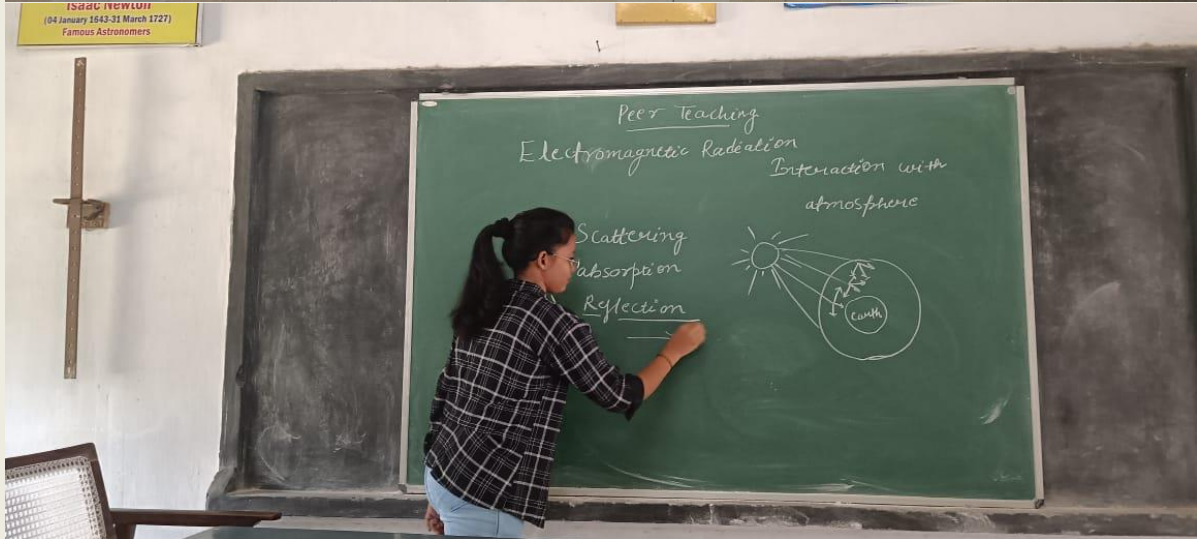 Isaac Newton
(04 January 1643-31 March 1727)
Famous Astronomers
Peer Teaching
Electromagnetic Radiation
Interaction with
atmosphere
Scattering
absorption
Reflection
Earth